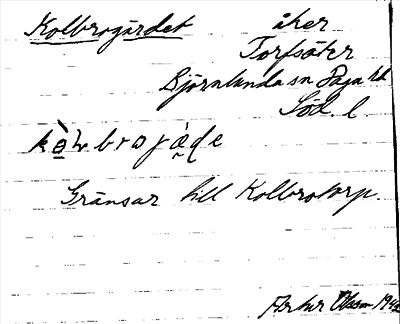 Kolbrogärdet åker
Torfsäter
Björnlunda sn Daga hd
Söd. l.
Gränsar till Kolbrotorp.
Olsson 1942